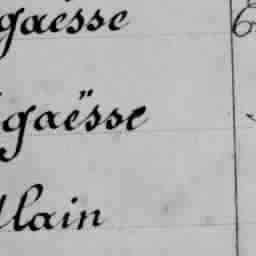 gaësse
gaësse
lain